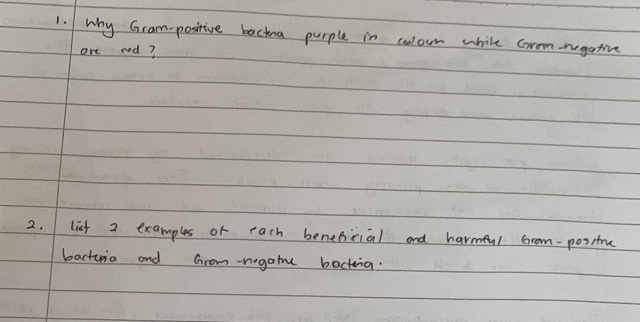 1. Why Gram-positive bacteria purple in colour while Gram-negative
are red?
2. list 2 examples of each beneficial and harmful Gram-positive
bacteria and Gram-negative bacteria.